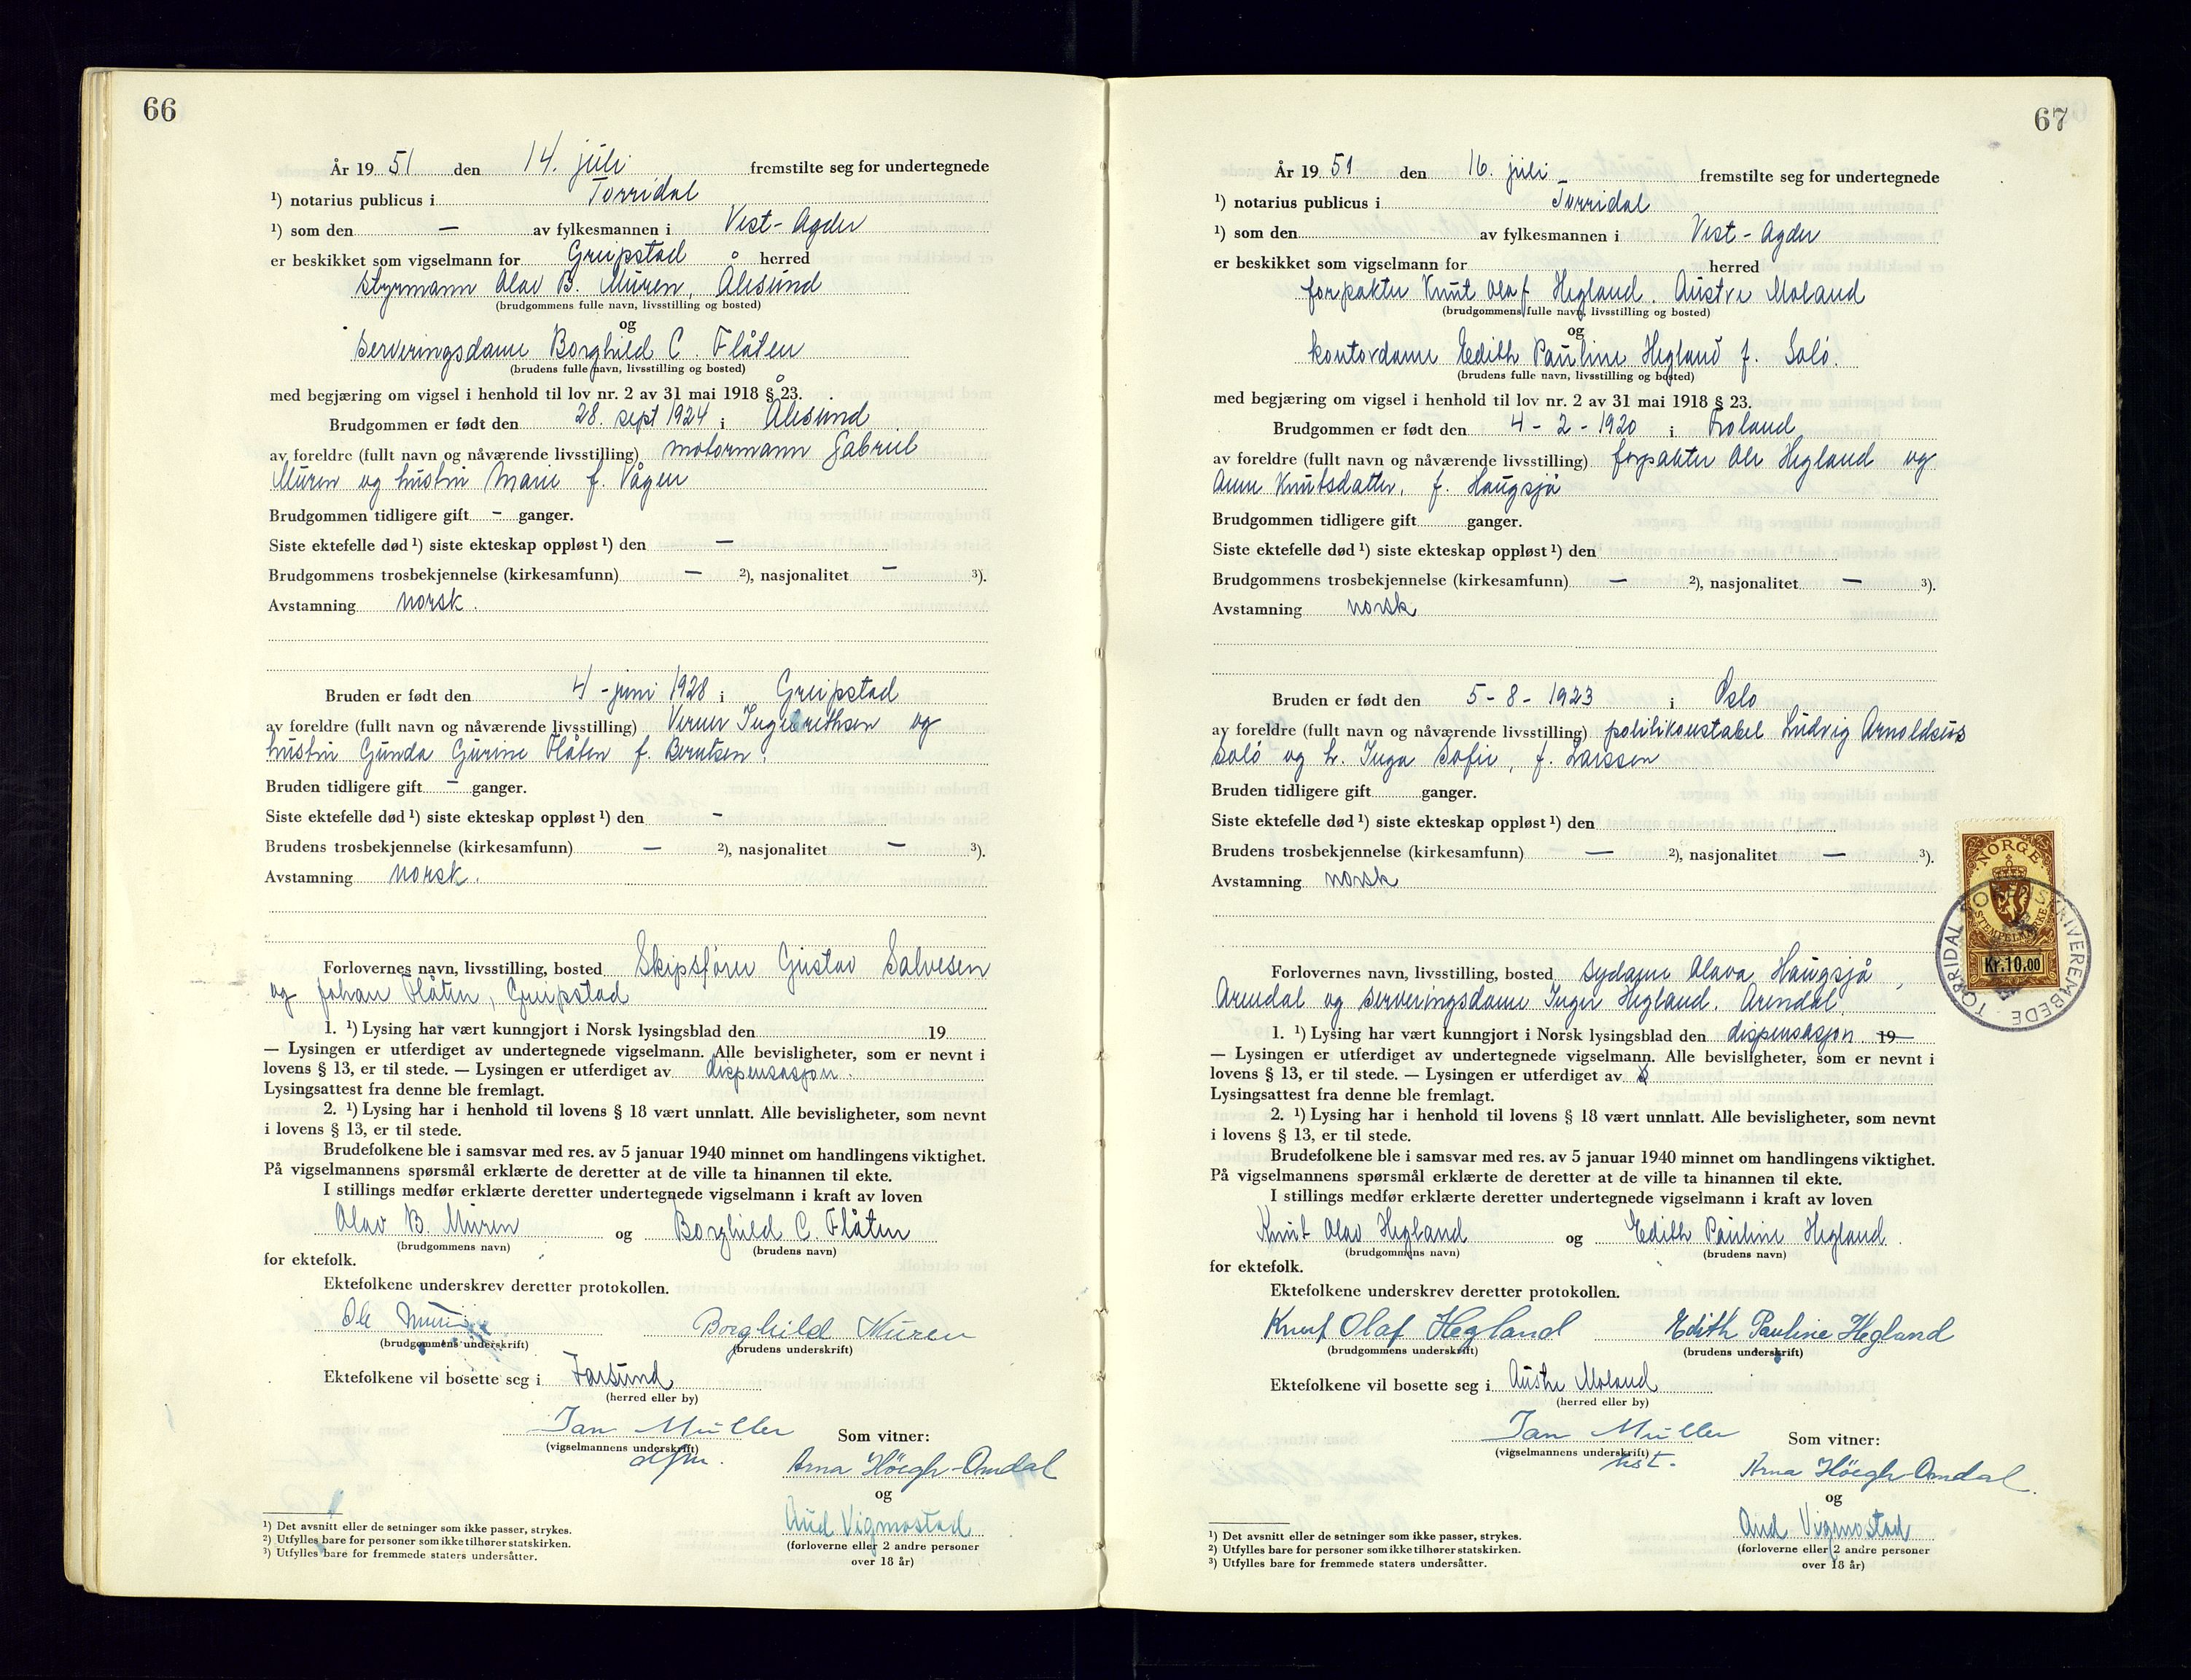 66
År 19 51 den 14. juli fremstilte seg for undertegnede
¹) notarius publicus i Torridal
¹) som den — av fylkesmannen i Vest-Agder
er beskikket som vigselmann for Greipstad herred
styrmann Olav B. Muren, Ålesund
(brudgommens fulle navn, livsstilling og bosted)
og
Serveringsdame Borghild C. Flåten
(brudens fulle navn, livsstilling og bosted)
med begjæring om vigsel i henhold til lov nr. 2 av 31 mai 1918 § 23.
Brudgommen er født den 28. sept 1924 i Ålesund
av foreldre (fullt navn og nåværende livsstilling) motormann Gabriel
Muren og hustru Marie f. Vågen
Brudgommen tidligere gift - ganger.
Siste ektefelle død ¹) siste ekteskap oppløst ¹) den —
Brudgommens trosbekjennelse (kirkesamfunn) — ²), nasjonalitet — ³).
Avstamning norsk.
Bruden er født den 4 - juni 1928 i Greipstad
av foreldre (fullt navn og nåværende livsstilling) Verner Ingebrethsen og
hustru Gunda Gurine Flåten f. Berntsen.
Bruden tidligere gift - ganger.
Siste ektefelle død ¹) siste ekteskap oppløst ¹) den -
Brudens trosbekjennelse (kirkesamfunn) — ²), nasjonalitet — ³).
Avstamning norsk.
Forlovernes navn, livsstilling, bosted Skipsfører Gustav Salvesen
og Johan Flåten, Greipstad
1. ¹) Lysing har vært kunngjort i Norsk lysingsblad den 19
— Lysingen er utferdiget av undertegnede vigselmann. Alle bevisligheter, som er nevnt i
lovens § 13, er til stede. — Lysingen er utferdiget av dispensasjon.
Lysingsattest fra denne ble fremlagt.
2. ¹) Lysing har i henhold til lovens § 18 vært unnlatt. Alle bevisligheter, som nevnt
i lovens § 13, er til stede.
Brudefolkene ble i samsvar med res. av 5 januar 1940 minnet om handlingens viktighet.
På vigselmannens spørsmål erklærte de deretter at de ville ta hinannen til ekte.
I stillings medfør erklærte deretter undertegnede vigselmann i kraft av loven
Olav B. Muren og Borghild C. Flåten
(brudgommens navn) (brudens navn)
for ektefolk.
Ektefolkene underskrev deretter protokollen.
Ole Muren Borghild Muren
(brudgommens underskrift) (brudens underskrift)
Ektefolkene vil bosette seg i Farsund
(herred eller by)
Jan Müller
(vigselmannens underskrift) Som vitner:
Arna Höegh-Omdal
og
Aud Vigmostad
(forloverne eller 2 andre personer
over 18 år)
¹) Det avsnitt eller de setninger som ikke passer, strykes.
²) Utfylles bare for personer som ikke tilhører statskirken.
³) Utfylles bare for fremmede staters undersåtter.
67
År 19 51 den 16. juli - fremstilte seg for undertegnede
¹) notarius publicus i Torridal
¹) som den av fylkesmannen i Vest-Agder
er beskikket som vigselmann for herred
forpakter Knut Olaf Hegland. Austre Moland
(brudgommens fulle navn, livsstilling og bosted)
og
kontordame Edith Pauline Hegland f. Solö.
(brudens fulle navn, livsstilling og bosted)
med begjæring om vigsel i henhold til lov nr. 2 av 31 mai 1918 § 23.
Brudgommen er født den 4 - 2 - 1920 i Froland
av foreldre (fullt navn og nåværende livsstilling) forpakter Ole Hegland og
Anne Knutsdatter, f. Haugsjå
Brudgommen tidligere gift ganger.
Siste ektefelle død ¹) siste ekteskap oppløst ¹) den
Brudgommens trosbekjennelse (kirkesamfunn) — ²), nasjonalitet — ³).
Avstamning norsk
Bruden er født den 5 - 8 - 1923 i Oslo
av foreldre (fullt navn og nåværende livsstilling) politikonstabel Ludvig Arnoldsius
Solö og h. Inga Sofie, f. Larssen
Bruden tidligere gift ganger.
Siste ektefelle død ¹) siste ekteskap oppløst ¹) den
Brudens trosbekjennelse (kirkesamfunn) — ²), nasjonalitet — ³).
Avstamning norsk
NORGE
STEMPELMERKE
Kr.10.00
TORRIDAL SORENSKRIVEREMBEDE
Forlovernes navn, livsstilling, bosted sydame Olava Haugsjå,
Arendal og serveringsdame Inger Hegland. Arendal.
1. ¹) Lysing har vært kunngjort i Norsk lysingsblad den dispensasjon 19
— Lysingen er utferdiget av undertegnede vigselmann. Alle bevisligheter, som er nevnt i
lovens § 13, er til stede. — Lysingen er utferdiget av
Lysingsattest fra denne ble fremlagt.
2. ¹) Lysing har i henhold til lovens § 18 vært unnlatt. Alle bevisligheter, som nevnt
i lovens § 13, er til stede.
Brudefolkene ble i samsvar med res. av 5 januar 1940 minnet om handlingens viktighet.
På vigselmannens spørsmål erklærte de deretter at de ville ta hinannen til ekte.
I stillings medfør erklærte deretter undertegnede vigselmann i kraft av loven
Knut Olav Hegland og Edith Pauline Hegland.
(brudgommens navn) (brudens navn)
for ektefolk.
Ektefolkene underskrev deretter protokollen.
Knut Olaf Hegland Edith Pauline Hegland
(brudgommens underskrift) (brudens underskrift)
Ektefolkene vil bosette seg i Austre Moland
(herred eller by)
Jan Müller
(vigselmannens underskrift) Som vitner:
Arna Höegh-Omdal.
og
Aud Vigmostad
(forloverne eller 2 andre personer
over 18 år)
¹) Det avsnitt eller de setninger som ikke passer, strykes.
²) Utfylles bare for personer som ikke tilhører statskirken.
³) Utfylles bare for fremmede staters undersåtter.